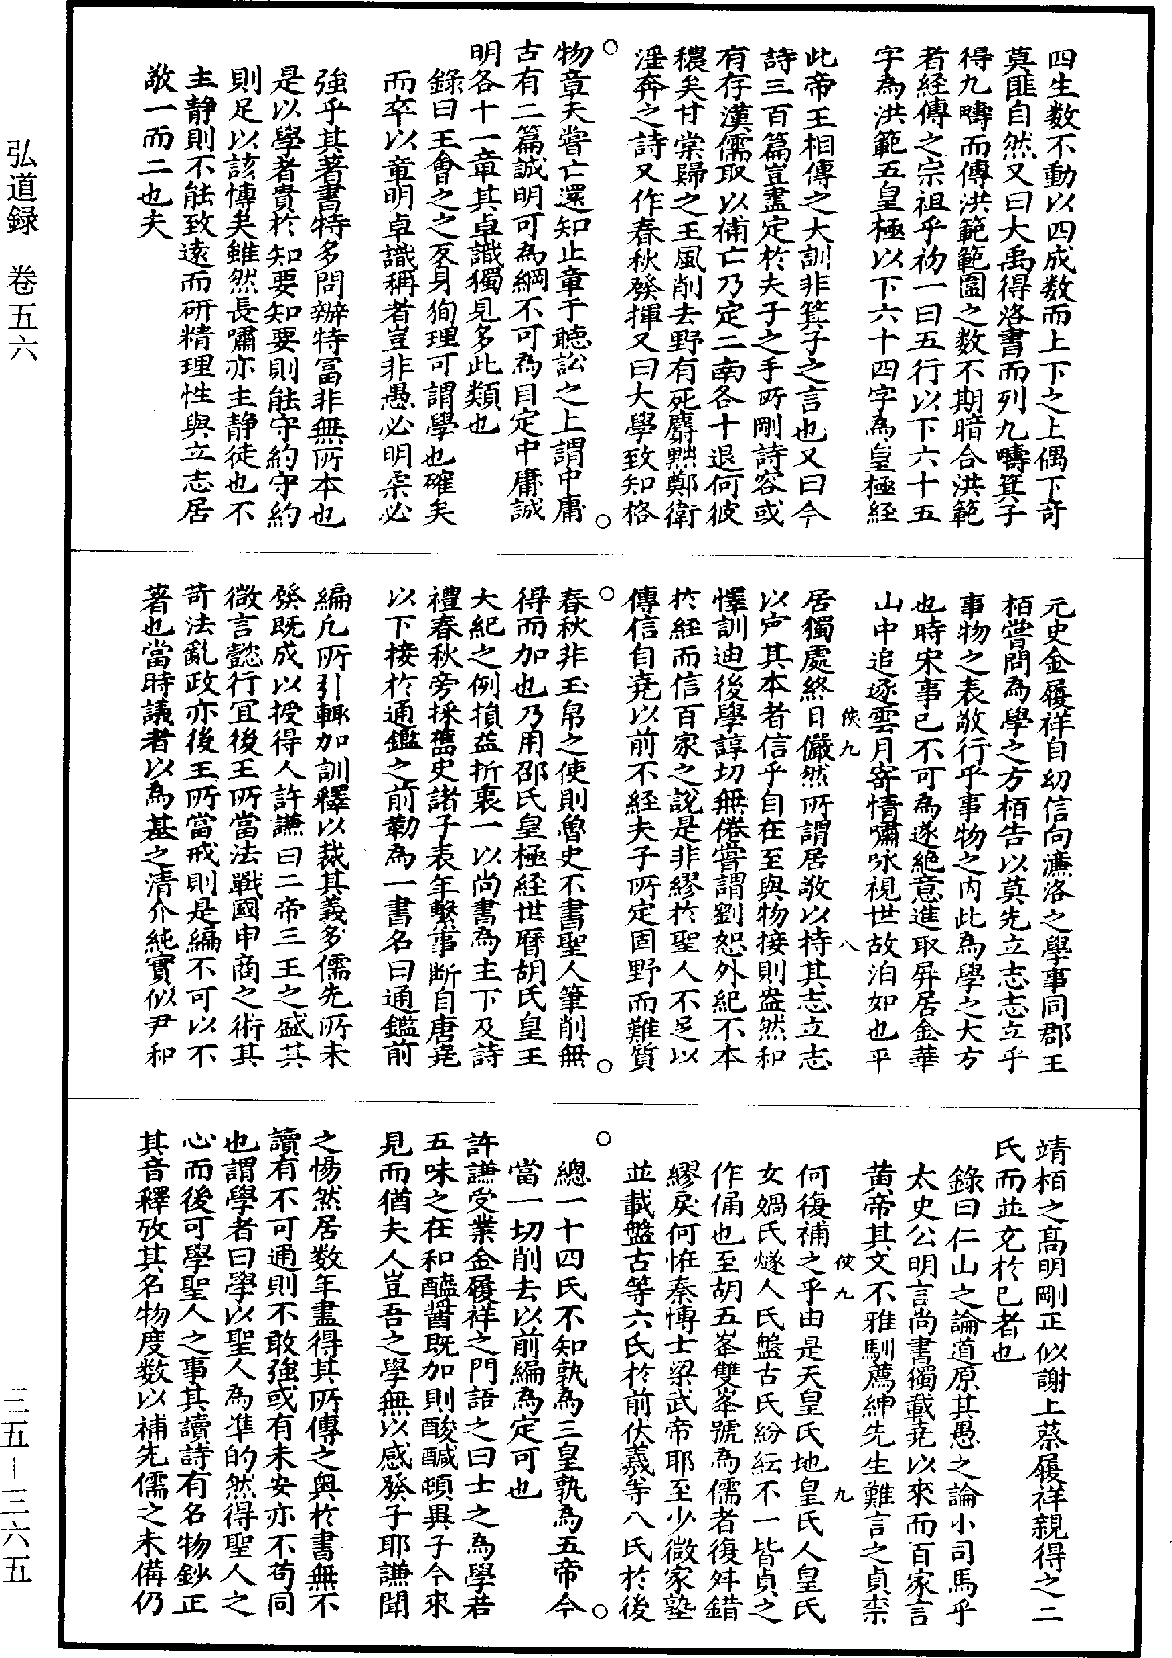 弘道録　卷五六
三五－三六五
四生数不動以四成数而上下之上偶下竒
莫匪自然又曰大禹得洛書而列九疇箕子
得九疇而傳洪範範圍之数不期暗合洪範
者經傳之宗祖乎初一曰五行以下六十五
字為洪範五皇極以下六十四字為皇極經
此帝王相傳之大訓非箕子之言也又曰今
詩三百篇豈盡定於夫子之手所刪詩容或
有存漢儒取以補亡乃定二南各十退何彼
穠矣甘棠歸之王風削去野有死麕黜鄭衛
淫奔之詩又作春秋發揮又曰大學致知格
○　○
物章天嘗亡還知止章于聴訟之上謂中庸
古有二篇誠明可為綱不可為目定中庸誠
明各十一章其卓識獨見多此類也
錄曰王會之之反身狥理可謂學也確矣
而卒以章明卓識稱者豈非愚必明柔必
強乎其著書特多問辦特冨非無所本也
是以學者貴於知要知要則能守約守約
則足以該博矣雖然長嘯亦主静徒也不
主静則不能致遠而研精理性與立志居
敬一而二也夫
元史金履祥自幼信向濂洛之學事同郡王
栢嘗問為學之方栢告以莫先立志志立乎
事物之表敬行乎事物之内此為學之大方
也時宋事已不可為遂絶意進取屏居金華
山中追逐雲月寄情嘯咏視世故泊如也平
俠九　八
居獨處終日儼然所謂居敬以持其志立志
以定其本者信乎自在至與物接則盎然和
懌訓迪後學諄切無倦嘗謂劉恕外紀不本
於經而信百家之說是非繆於聖人不足以
傳信自堯以前不經夫子所定固野而難質
○　○
春秋非玉帛之使則魯史不書聖人筆削無
得而加也乃用邵氏皇極經世曆胡氏皇王
大紀之例損益折衷一以尚書為主下及詩
禮春秋旁採舊史諸子表年繫事斷自唐堯
以下接於通鑑之前勒為一書名曰通鑑前
編凡所引輙加訓釋以裁其義多儒先所未
發既成以授得人許謙曰二帝三王之盛其
微言懿行宜後王所當法戰國申商之術其
苛法亂政亦後王所當戒則是編不可以不
著也當時議者以為基之清介純實似尹和
靖栢之高明剛正似謝上蔡履祥親得之二
氏而並充於己者也
錄曰仁山之論道原其愚之論小司馬乎
太史公明言尚書獨載堯以來而百家言
黃帝其文不雅馴薦紳先生難言之貞柰
俠九　九
何復補之乎由是天皇氏地皇氏人皇氏
女媧氏燧人氏盤古氏紛紜不一皆貞之
作俑也至胡五峯雙峯號為儒者復舛錯
繆戾何恠秦博士梁武帝耶至少微家塾
並載盤古等六氏於前伏羲等八氏於後
○　○
總一十四氏不知孰為三皇孰為五帝今
當一切削去以前編為定可也
許謙受業金履祥之門語之曰士之為學若
五味之在和醯醬既加則酸醎頓異子今來
見而猶夫人豈吾之學無以感發子耶謙聞
之惕然居数年盡得其所傳之奥於書無不
讀有不可通則不敢強或有未安亦不苟同
也謂學者曰學以聖人為準的然得聖人之
心而後可學聖人之事其讀詩有名物鈔正
其音釋攷其名物度数以補先儒之未備仍